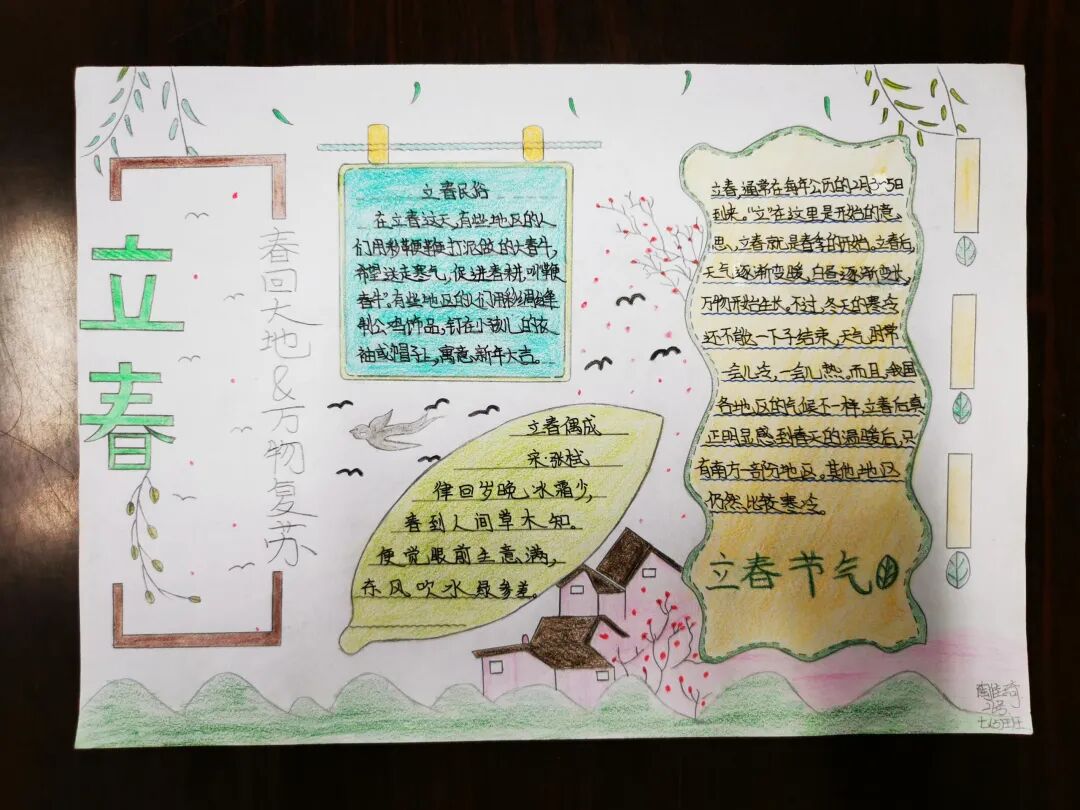 立春
春回大地&万物复苏
立春民俗
在立春这天,有些地区的人
们用彩鞭鞭打泥做的大春牛,
希望送走寒气,促进春耕,叫“鞭
春牛”。有些地区的人们用彩绸缝
制公鸡饰品,钉在小孩儿的衣
袖或帽子上,寓意新年大吉。
立春偶成
宋·张栻
律回岁晚冰霜少,
春到人间草木知。
便觉眼前生意满,
东风吹水绿参差。
立春,通常在每年公历的2月3~5日
到来。“立”在这里是开始的意
思、立春就是春季的开始,立春后,
天气逐渐变暖,白昼逐渐变长,
万物开始生长。不过,冬天的寒冷
还不能一下子结束,天气时常
一会儿冷,一会儿热。而且,我国
各地区的气候不一样,立春后真
正明显感到春天的温暖后,只
有南方一部分地区。其他地区
仍然比较寒冷。
立春节气